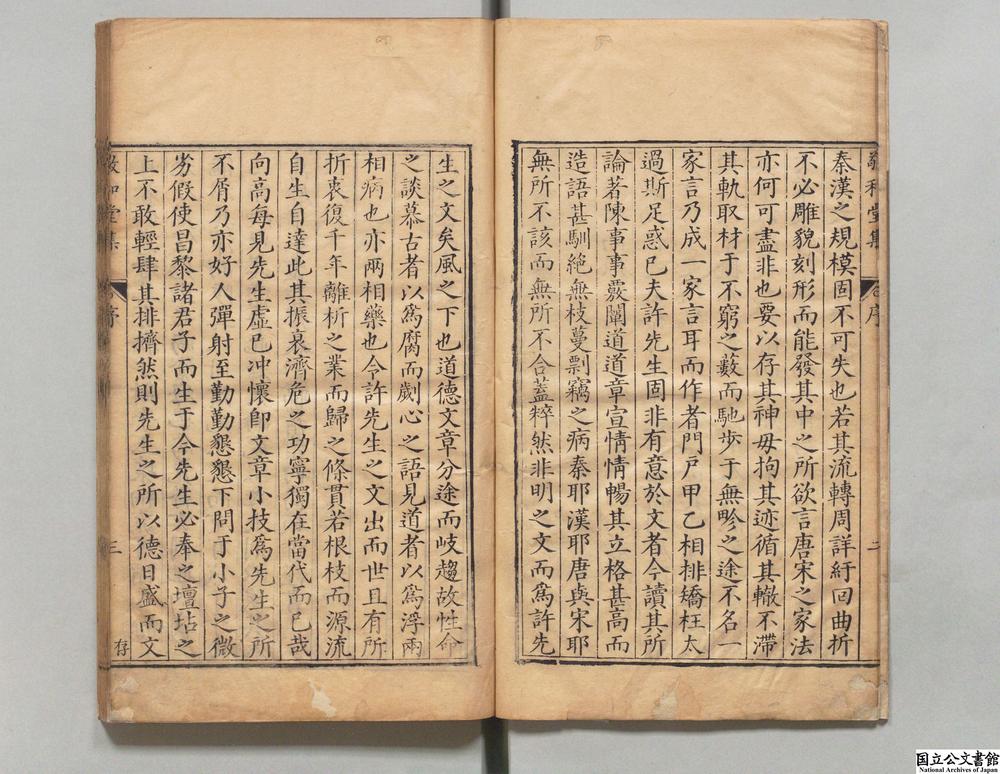 敬和堂集
序
二
秦漢之規模固不可失也若其流轉周詳紆回曲折
不必雕貌刻形而能發其中之所欲言唐宋之家法
亦何可盡非也要以存其神毋拘其迹循其轍不滯
其軌取材于不窮之藪而馳步于無畛之途不名一
家言乃成一家言耳而作者門戶甲乙相排矯枉太
過斯足惑已夫許先生固非有意於文者今讀其所
論著陳事事覈闡道道章宣情情暢其立格甚高而
造語甚馴絕無枝蔓剽竊之病秦耶漢耶唐與宋耶
無所不該而無所不合蓋粹然非明之文而為許先
生之文矣風之下也道德文章分途而岐趨故性命
之談慕古者以為腐而劌心之語見道者以為浮兩
相病也亦兩相藥也今許先生之文出而世且有所
折衷復千年離析之業而歸之條貫若根枝而源流
自生自達此其振衰濟危之功寧獨在當代而已哉
向高每見先生虛已冲懷卽文章小技為先生之所
不屑乃亦好人彈射至勤勤懇懇下問于小子之微
劣假使昌黎諸君子而生于今先生必奉之壇坫之
上不敢輕肆其排擠然則先生之所以德日盛而文
敬和堂集
序
三
存
国立公文書館
National Archives of Japan